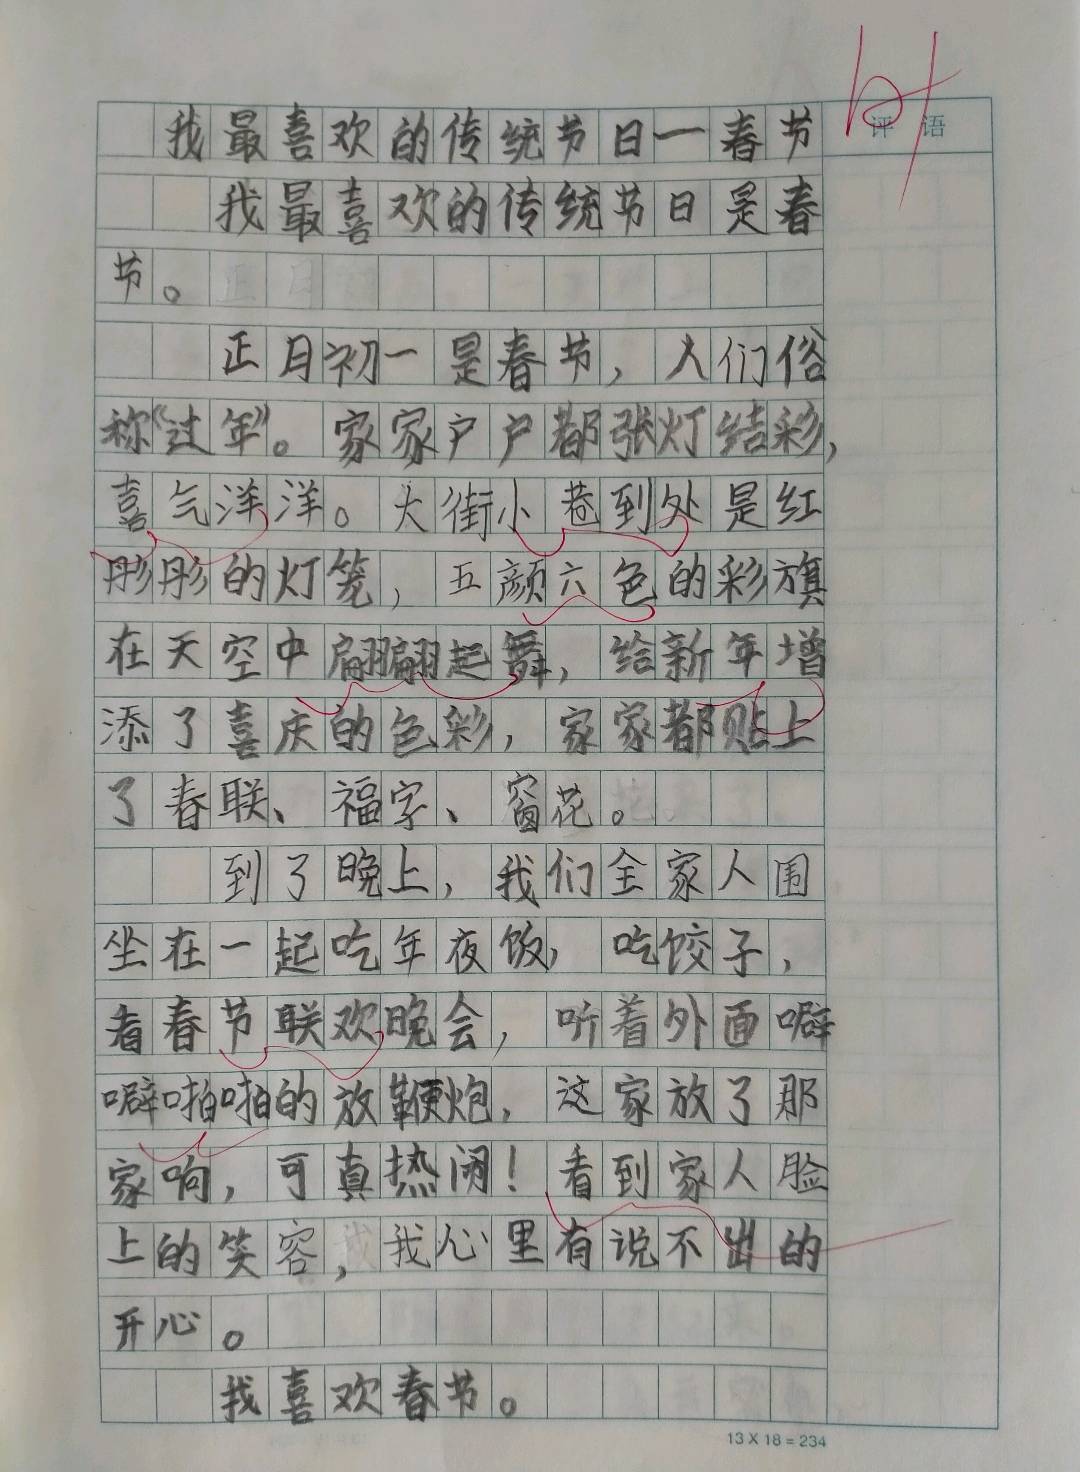 我最喜欢的传统节日一春节
我最喜欢的传统节日是春
节。
正月初一是春节，人们俗
称“过年”。家家户户都张灯结彩，
喜气洋洋。大街小巷到处是红
彤彤的灯笼，五颜六色的彩旗
在天空中翩翩起舞，给新年增
添了喜庆的色彩，家家都贴上
了春联、福字、窗花。
到了晚上，我们全家人围
坐在一起吃年夜饭，吃饺子，
看春节联欢晚会，听着外面噼
噼啪啪的放鞭炮，这家放了那
家响，可真热闹！看到家人脸
上的笑容，我心里有说不出的
开心。
我喜欢春节。
评语
13×18=234